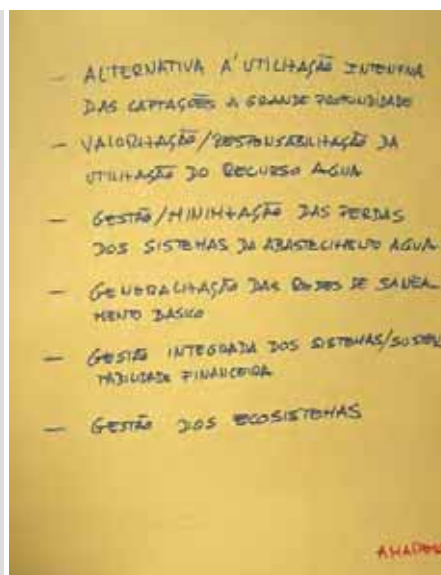 - ALTERNATIVA A' UTILIZAÇÃO INTENSIVA
DAS CAPTAÇÕES A GRANDE PROFUNDIDADE
- VALORIZAÇÃO/RESPONSABILIZAÇÃO DA
UTILIZAÇÃO DO RECURSO AGUA
- GESTÃO/MINIMIZAÇÃO DAS PERDAS
DOS SISTEMAS DA ABASTECIMENTO AGUA
- GENERALIZAÇÃO DAS REDES DE SANEA
MENTO BASICO
- GESTÃO INTEGRADA DOS SISTEMAS/SUSTEN
TABILIDADE FINANCEIRA
- GESTÃO DOS ECOSISTEMAS